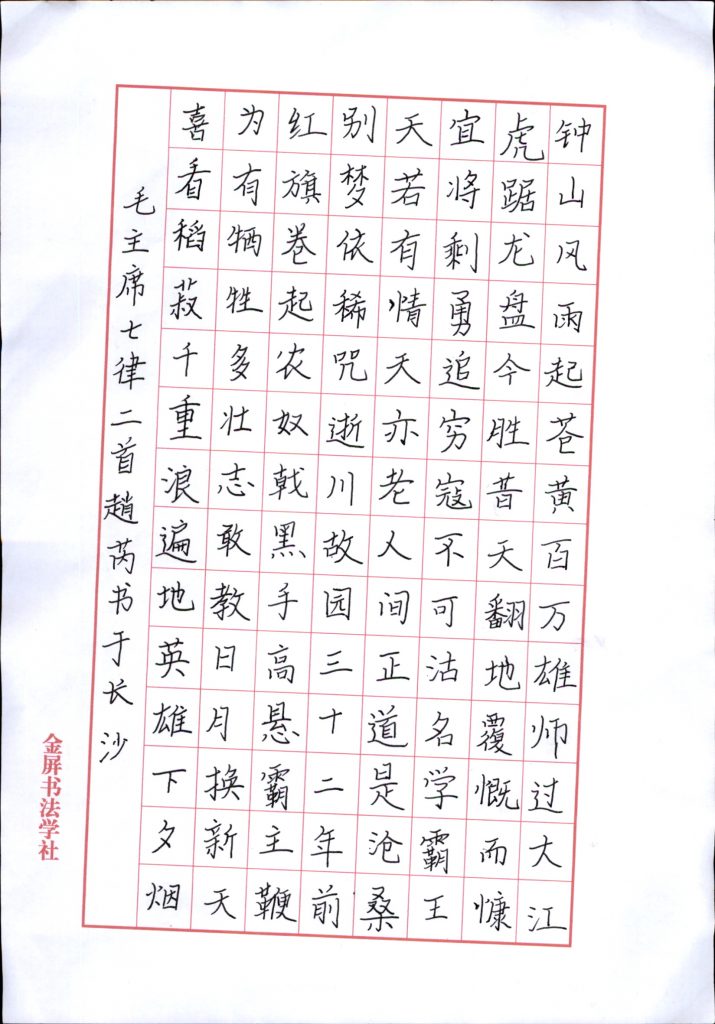 钟山风雨起苍黄百万雄师过大江
虎踞龙盘今胜昔天翻地覆慨而慷
宜将剩勇追穷寇不可沽名学霸王
天若有情天亦老人间正道是沧桑
别梦依稀咒逝川故园三十二年前
红旗卷起农奴戟黑手高悬霸主鞭
为有牺牲多壮志敢教日月换新天
喜看稻菽千重浪遍地英雄下夕烟
毛主席七律二首趙芮书于长沙
金屏书法学社